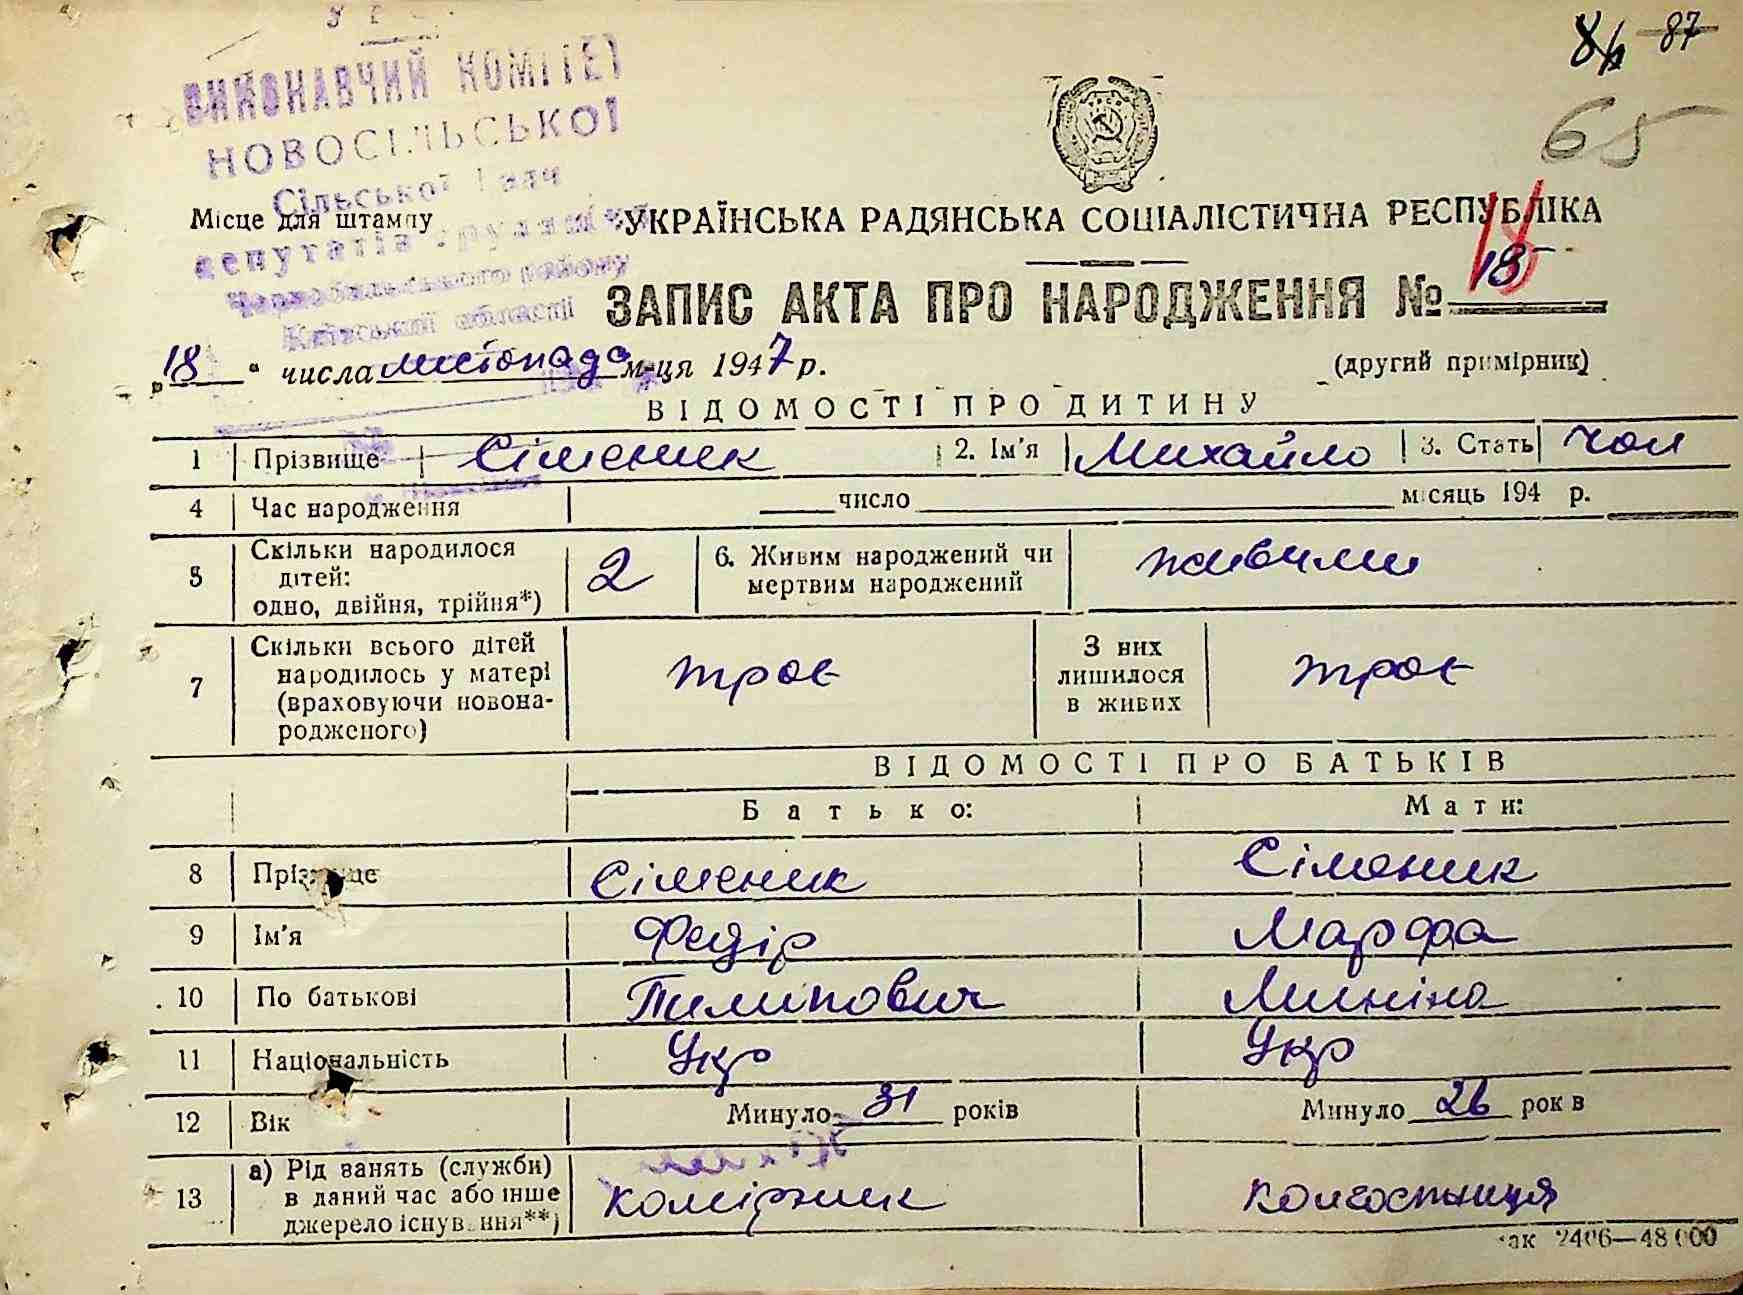 87
65
ВИКОНАВЧИЙ КОМІТЕТ
НОВОСІЛЬСЬКОЇ
Сільської Ради
депутатів трудящих
Чорнобильського району
Київської області
Місце для штампу
УКРАЇНСЬКА РАДЯНСЬКА СОЦІАЛІСТИЧНА РЕСПУБЛІКА
ЗАПИС АКТА ПРО НАРОДЖЕННЯ № 18
„18“ числа листопада м-ця 1947 р.
(другий примірник)
ВІДОМОСТІ ПРО ДИТИНУ
1 Прізвище Сіменик 2. Ім'я Михайло 3. Стать чол
4 Час народження число місяць 194 р.
5 Скільки народилося дітей: одно, двійня, трійня*) 2 6. Живим народжений чи мертвим народжений живими
7 Скільки всього дітей народилось у матері (враховуючи новонародженого) троє З них лишилося в живих троє
ВІДОМОСТІ ПРО БАТЬКІВ
Батько: Мати:
8 Прізвище Сіменик Сіменик
9 Ім'я Федір Марфа
10 По батькові Пилипович Миніна
11 Національність Укр Укр
12 Вік Минуло 31 років Минуло 26 років
13 а) Рід занять (служби) в даний час або інше джерело існування**) комірник колгоспниця
Зак 2406—48 000